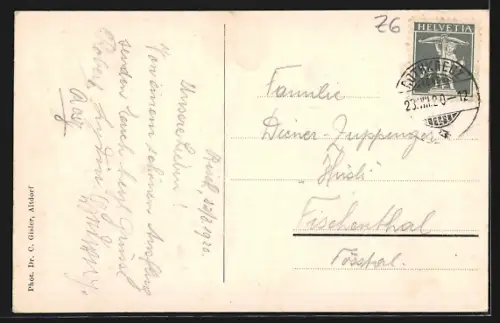 Z6
HELVETIA
23.VII.20-12
Familie
Diener-Zuppinger
"Hüsli"
Fischenthal
Tösstal.
Rütli, 23/7 1920.
Unsere Lieben!
Von einem schönen Ausflug
senden Euch herzl. Grüsse
Robert, Lydia,
Phot. Dr. C. Gisler, Altdorf